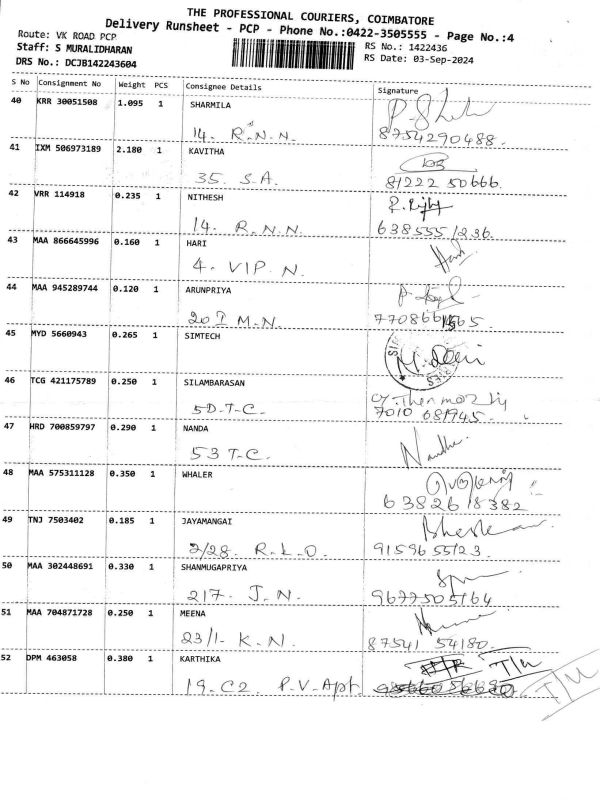 THE PROFESSIONAL COURIERS, COIMBATORE
Delivery Runsheet - PCP - Phone No.:0422-3505555 - Page No.:4
Route: VK ROAD PCP
Staff: S MURALIDHARAN
DRS No.: DCJB142243604
RS No.: 1422436
RS Date: 03-Sep-2024
S No Consignment No Weight PCS Consignee Details Signature
40 KRR 30051508 1.095 1 SHARMILA
14. R.N.N. 8754290488.
41 IXM 506973189 2.180 1 KAVITHA
35. S.A. 81222 50666.
42 VRR 114918 0.235 1 NITHESH
14. R.N.N. 6385551236.
43 MAA 866645996 0.160 1 HARI Hari
4. VIP. N.
44 MAA 945289744 0.120 1 ARUNPRIYA
20 I M.N.
45 MYD 5660943 0.265 1 SIMTECH
46 TCG 421175789 0.250 1 SILAMBARASAN
5D.T.C. 7010 681945.
47 HRD 700859797 0.290 1 NANDA
53 T.C.
48 MAA 575311128 0.350 1 WHALER
6382618382
49 TNJ 7503402 0.185 1 JAYAMANGAI
2/28. R.L.O. 9159655123.
50 MAA 302448691 0.330 1 SHANMUGAPRIYA
217. J.N. 9677505164
51 MAA 704871728 0.250 1 MEENA
23/1. K.N. 87541 54180.
52 DPM 463058 0.380 1 KARTHIKA T/U
19. C2. P.V.Apt T/U